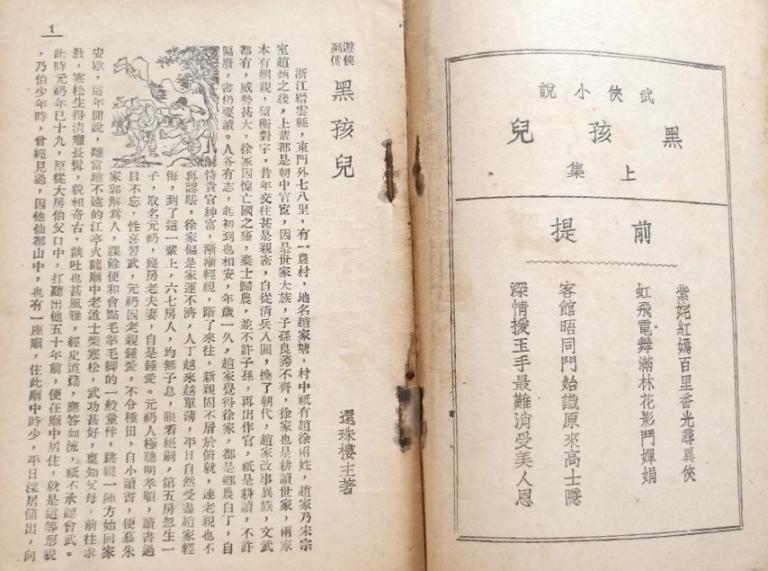 武俠小說
黑孩兒
上集
前提
紫姹紅嫣百里香光尋異俠
虹飛電舞滿林花影鬥嬋娟
客館晤同門始識原來高士隱
深情援玉手最難消受美人恩
遊俠列傳
黑孩兒
還珠樓主著
浙江縉雲縣，東門外七八里，有一農村，地名趙家塘，村中祇有趙徐兩姓，趙家乃宋宗
室趙炳之後，上輩都是朝中官宦，因是世家大族，子孫良莠不齊，徐家也是耕讀世家，兩家
本有姻親，望衡對宇，昔年交往甚是親密，自從清兵入關，換了朝代，趙家改事異族，文武
都有，威勢甚大，徐家因懷亡國之痛，棄士歸農，並不許子孫，再出作官，祇是耕讀，不許
隔廢，書仍要讀。人各有志，起初到也相安，年歲一久，趙家覺得徐家，都是鄉農白丁，自
恃貴官紳富，漸漸輕視，斷了來往，新親固不屑於俯就，連老親也不
再認賬，徐家偏是家運不濟，人丁越來越單薄，平日自然受盡趙家輕
侮，到了這一輩上，六七房人，均無子息，眼看絕嗣，第五房忽生一
子，取名元礽，幾房老夫妻，自是鍾愛。元礽人極聰明孝順，讀書過
目不忘，性喜習武，元礽因老親鍾愛，不令種田，自小讀書，便慕朱
家郭解為人，課餘便和會點毛拳毛脚的一般童伴，跳縱一陣方始回家
安歇，這年聞說，離當地不遠的江亭火龍廟中老道士柴寒松，武功甚好，稟知父母，前往求
教，寒松生得清癯長髯，貌相奇古，談吐也甚風雅，經史道籍，應答如流，祇不承認會武。
此時元礽年已十九，原從大房伯父口中，打聽出他五十年前，便在廟中居住，就是這等形貌
，乃伯少年時，曾經見過，因他仙都山中，也有一座廟，住此廟中時少，平日深居簡出，向
1